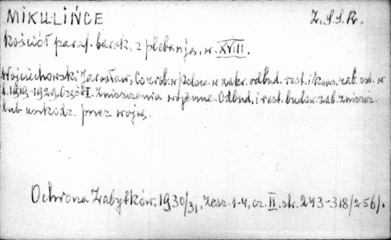 MIKULIŃCE Z.S.S.R.
Kościół paraf. barok. z plebanją, w. XVIII.
Wojciechowski Jarosław, Co zrob. w Polsce w zakr. odbud. rest. i kons. zab. od. w
l. 1919-1929. Część I. Zniszczenia wojenne. Odbud. i rest. budow. zab. zniszcz.
lub uszkodz. przez wojnę.
Ochrona Zabytków. 1930/31, zesz. 1-4, cz. II, str. 243-318/256/.